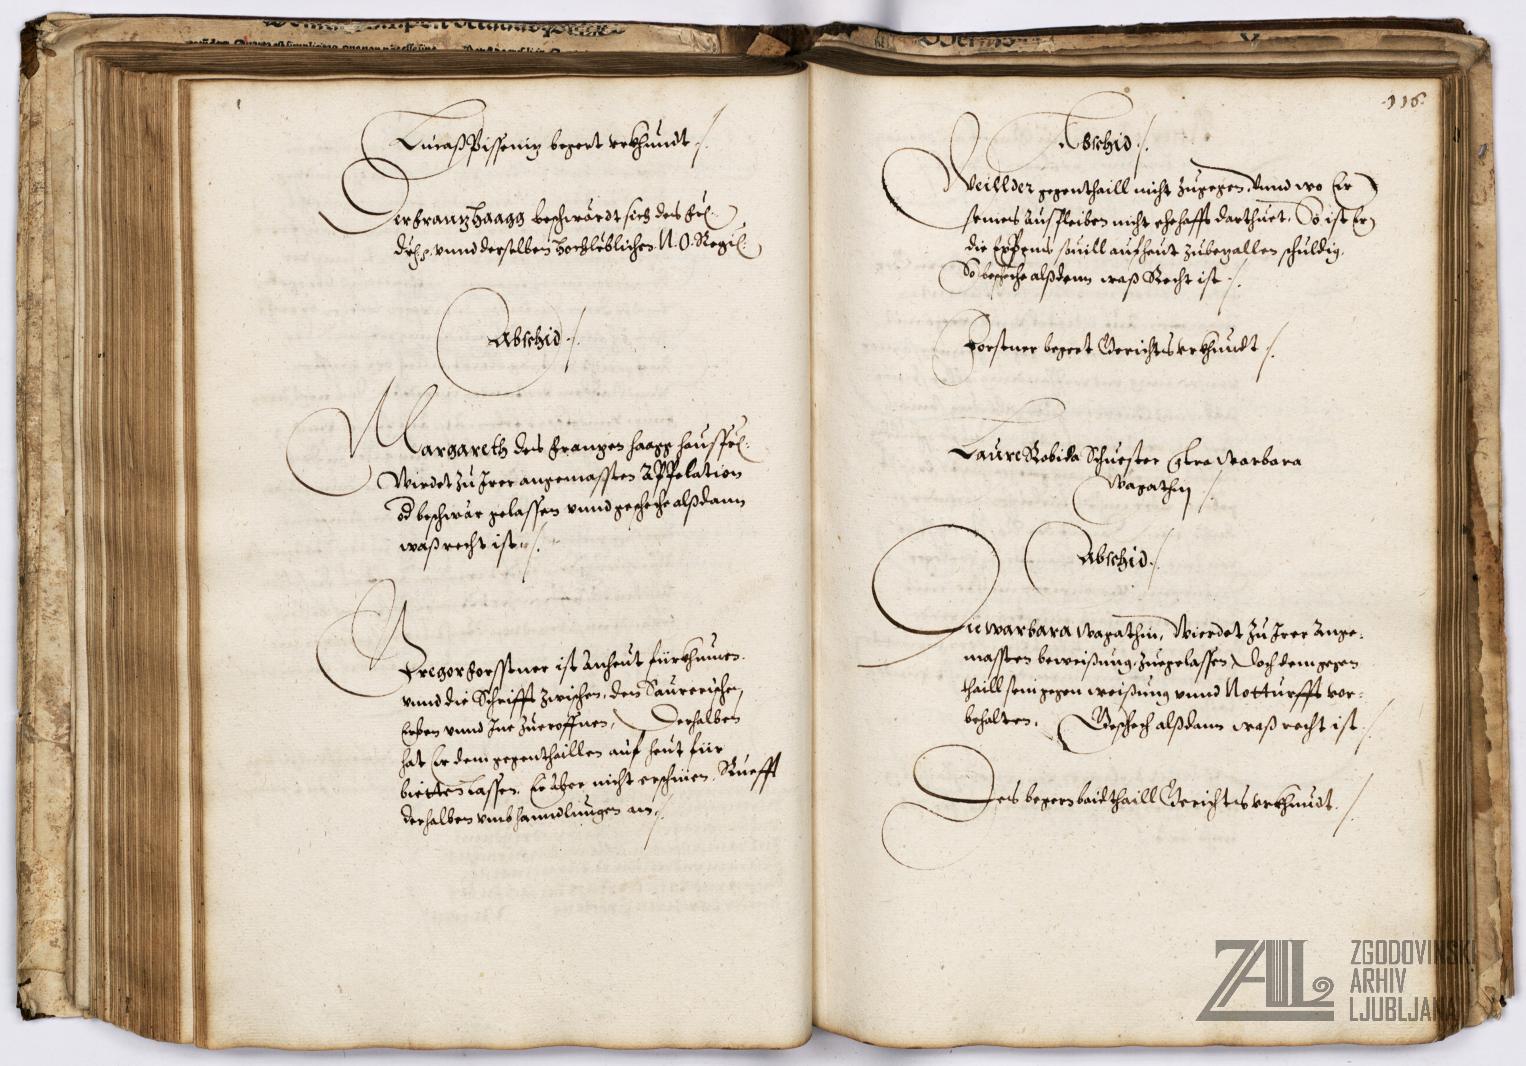 Lucaß Pissenig begert vrkhundt
Der Frantz Haagg beschwärdt sich des für:
drh: vnnd derselben Hochlöblichen N: O: Regi:
Abschid
Margareth des Frantzen Haagg Haussfr:
Wirdet zu Irer angemassten Appelation
od beschwär gelassen vnnd geschehe alßdann
waß recht ist
Gregor Forsstner ist Anheut fürkhumen
vnnd die Schrifft zwischen, den Saurerischen
Erben vnnd Ine zueroffnen, Derhalben
hat Er dem gegenthaillen auf heut für
bietten lassen, Er aber nicht erschinen, Ruefft
derhalben vmb hanndlungen an
116
Abschid
Weill der gegenthaill nicht zugegen, Vnnd wo Er
seines Ausbleiben nicht ehehafft darthuet, So ist Er
die Expens souill auf heut zubezallen schuldig,
So beschehe alßdenn waß Recht ist
Forstner begert Gerichts vrkhundt
Laure Robida Schuester Ctra Warbara
Wagathin
Abschid
Die Warbara Wagathin, Wierdet zu Irer Ange:
massten beweißung, zuegelassen, Doch dem gegen
thaill sein gegen weißung vnnd Notturfft vor:
behalten, Geschech alßdann waß recht ist
Des begern baid thaill Gerichts vrkhundt
ZAL ZGODOVINSKI
ARHIV
LJUBLJANA